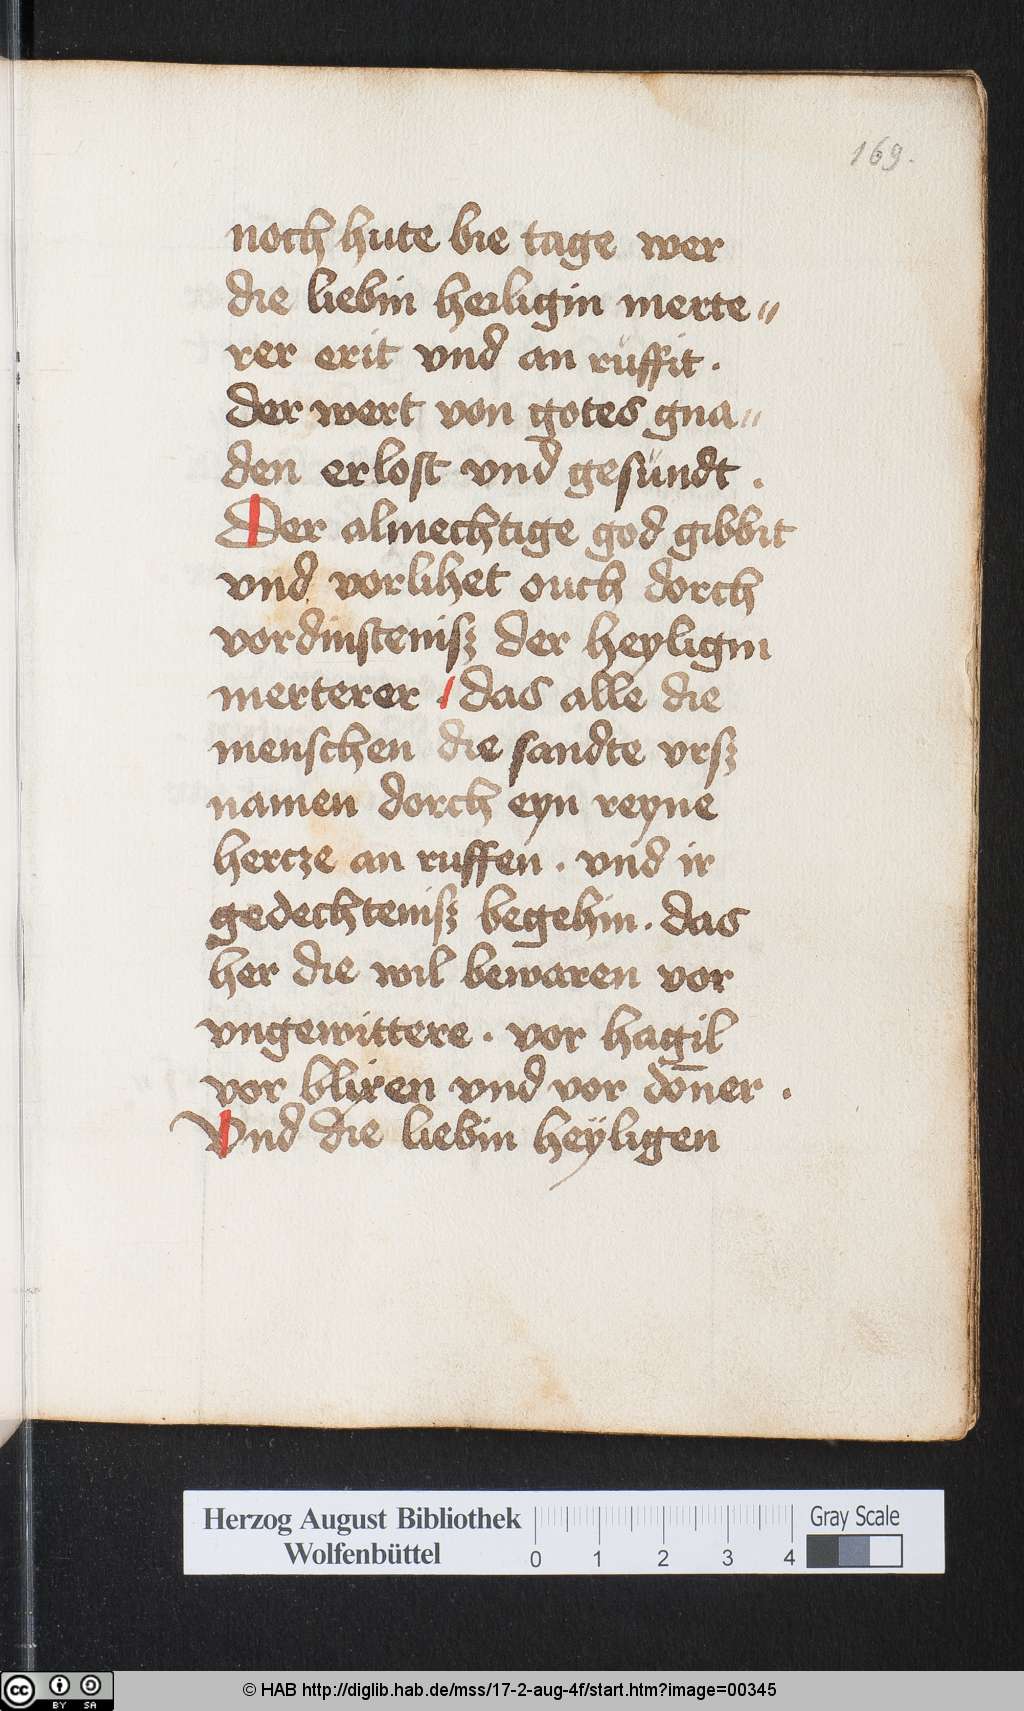 169.
noch hute bie tage wer
die liebin heiligin merte〃
rer erit vnd an ruͤffit.
der wert von gotes gna〃
den erlost vnd gesuͤndt .
Der almechtige god gibbit
vnd vorlihet ouch dorch
vordinstenisz der heyligin
merterer . das alle die
menschen die sandte vrsz
namen dorch eyn reyne
hercze an ruffen . vnd ir
gedechtenisz begehin . das
her die wil bewaren vor
vngewittere . vor hagil
vor blixen vnd vor don̄er .
Vnd die liebin heÿligen
Herzog August Bibliothek
Wolfenbüttel
0 1 2 3 4
Gray Scale
cc BY SA
© HAB http://diglib.hab.de/mss/17-2-aug-4f/start.htm?image=00345